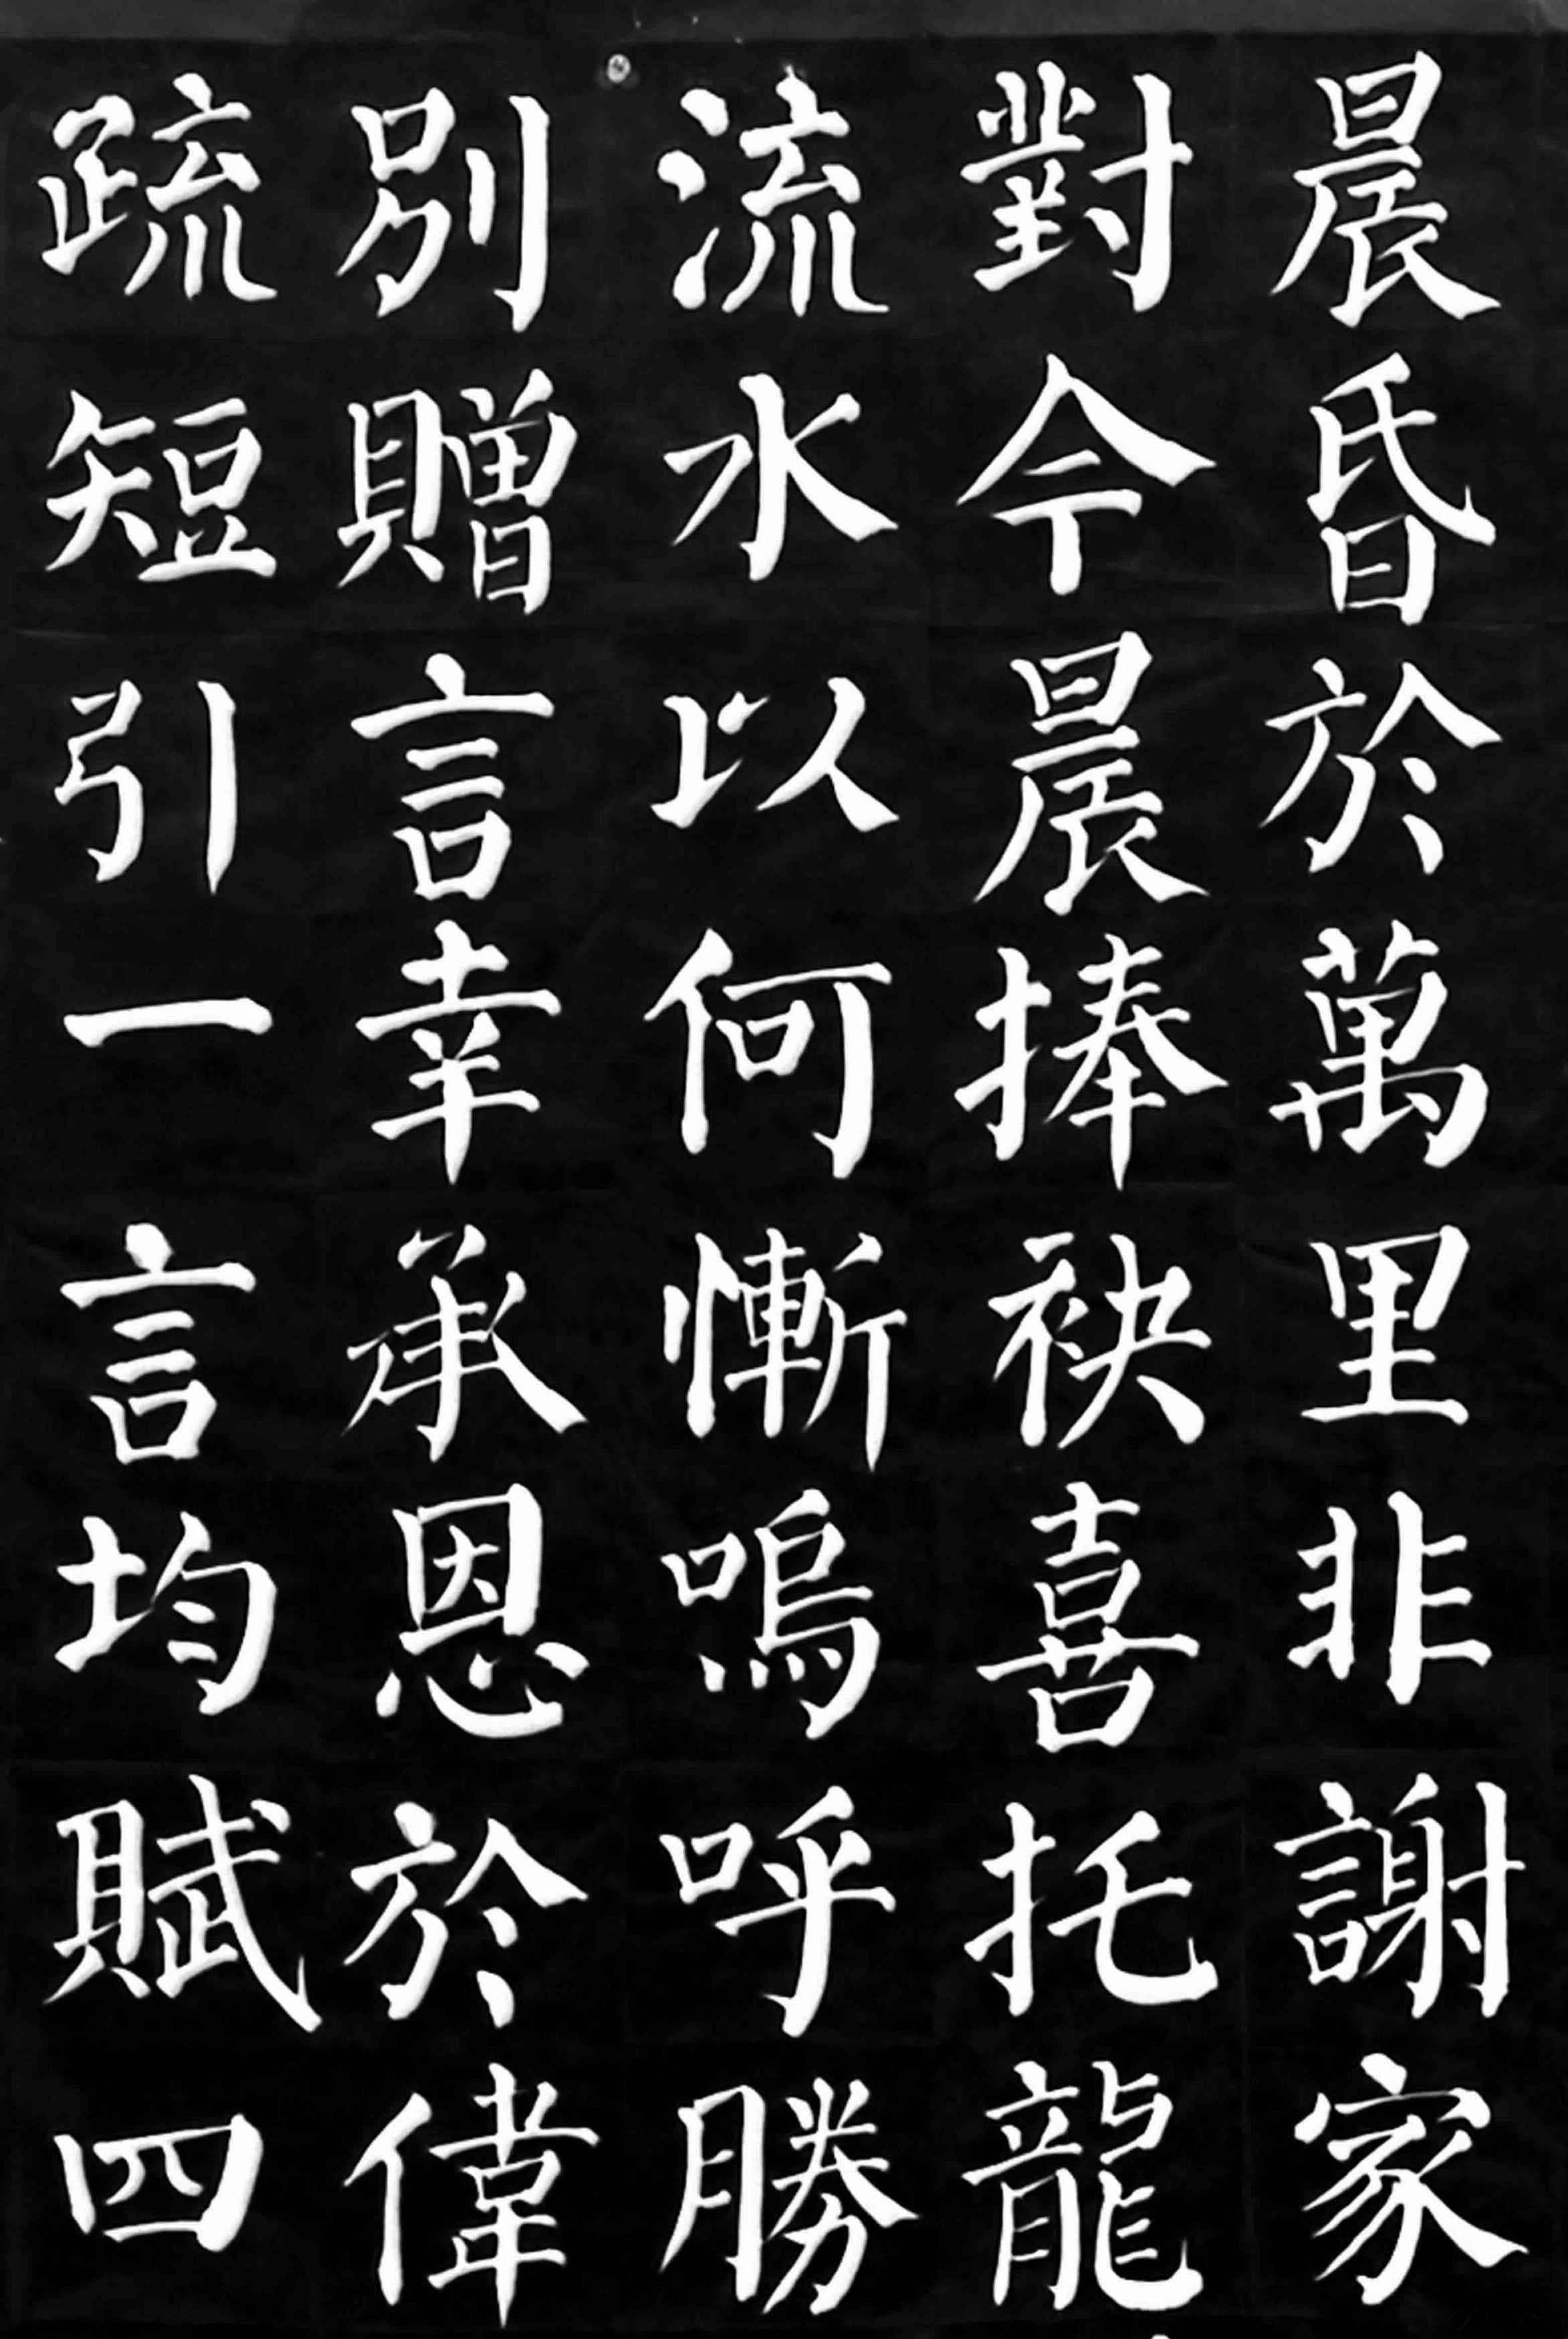 晨昏於萬里非謝家
對今晨捧袂喜托龍
流水以何慚嗚呼勝
別贈言幸承恩於偉
疏短引一言均賦四